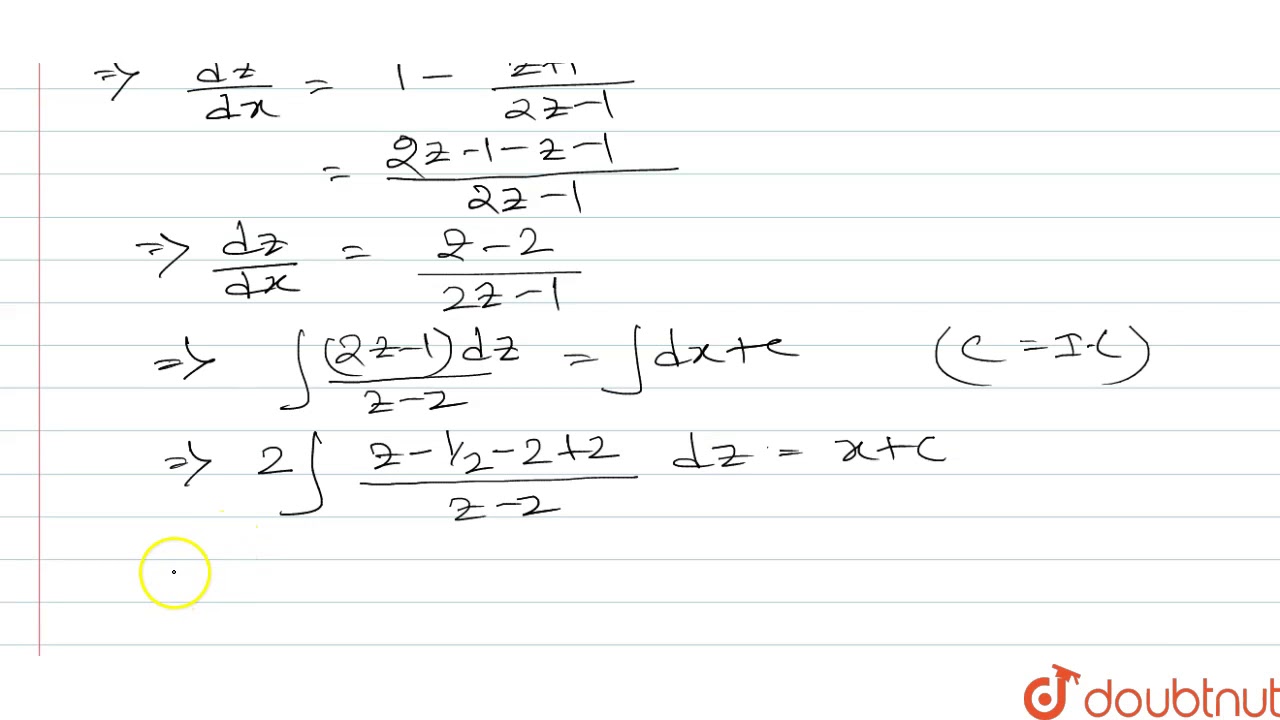 => dz/dx = 1 - (z+1)/(2z-1)
= (2z-1-z-1)/(2z-1)
=> dz/dx = (z-2)/(2z-1)
=> ∫ (2z-1)dz/(z-2) = ∫dx+c (c = I.C)
=> 2∫ (z-1/2-2+2)/(z-2) dz = x+c
doubtnut